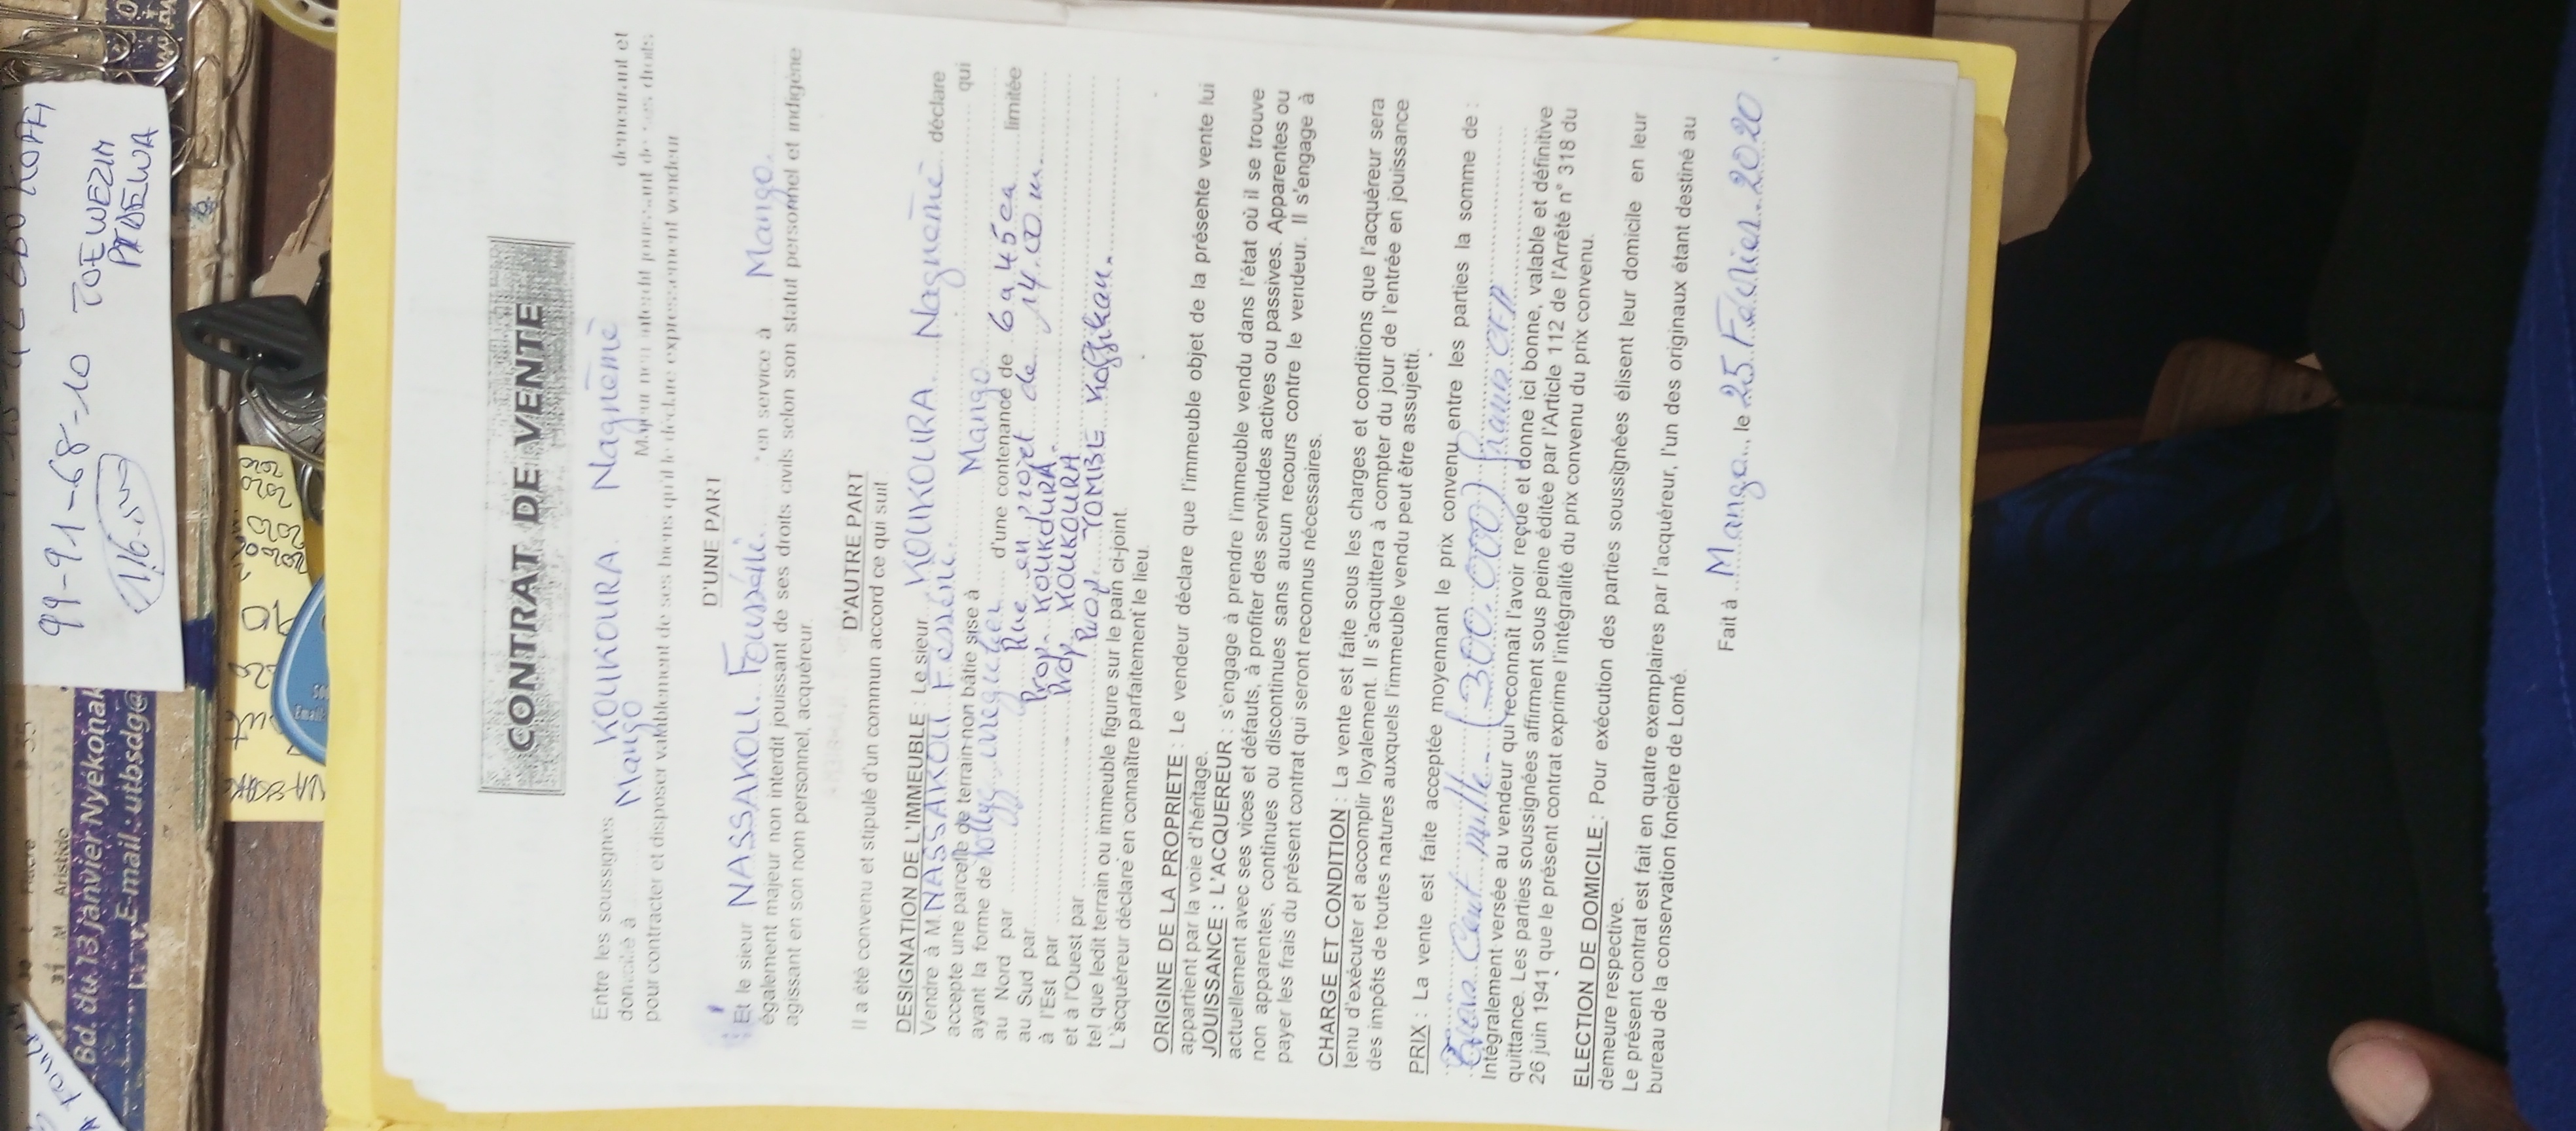 CONTRAT DE VENTE
Entre les soussignés KOUKOURA Nagnême demeurant et
domicilié à Mango Majeur non interdit jouissant de ses droits
pour contracter et disposer valablement de ses biens qu'il le déclare expressement vendeur
D'UNE PART
Et le sieur NASSAKOU Fousséni en service à Mango
également majeur non interdit jouissant de ses droits civils selon son statut personnel et indigène
agissant en son nom personnel, acquéreur.
D'AUTRE PART
Il a été convenu et stipulé d'un commun accord ce qui suit
DESIGNATION DE L'IMMEUBLE : Le sieur KOUKOURA Nagnême déclare
Vendre à M. NASSAKOU qui
accepte une parcelle de terrain non bâtie sise à Mango
ayant la forme de d'une contenance de 6a 45ca limitée
au Nord par Rue en projet de 14.00 m.
au Sud par Prop. KOUKOURA
à l'Est par Prop KOUKOURA
et à l'Ouest par Prop TOMBE
tel que ledit terrain ou immeuble figure sur le pain ci-joint.
L'acquéreur déclare en connaître parfaitement le lieu.
ORIGINE DE LA PROPRIETE : Le vendeur déclare que l'immeuble objet de la présente vente lui
appartient par la voie d'héritage.
JOUISSANCE : L'ACQUEREUR : s'engage à prendre l'immeuble vendu dans l'état où il se trouve
actuellement avec ses vices et défauts, à profiter des servitudes actives ou passives. Apparentes ou
non apparentes, continues ou discontinues sans aucun recours contre le vendeur. Il s'engage à
payer les frais du présent contrat qui seront reconnus nécessaires.
CHARGE ET CONDITION : La vente est faite sous les charges et conditions que l'acquéreur sera
tenu d'exécuter et accomplir loyalement. Il s'acquittera à compter du jour de l'entrée en jouissance
des impôts de toutes natures auxquels l'immeuble vendu peut être assujetti.
PRIX : La vente est faite acceptée moyennant le prix convenu entre les parties la somme de :
Trois Cent mille (300.000) francs CFA
Intégralement versée au vendeur qui reconnaît l'avoir reçue et donne ici bonne, valable et définitive
quittance. Les parties soussignées affirment sous peine éditée par l'Article 112 de l'Arrêté n° 318 du
26 juin 1941 que le présent contrat exprime l'intégralité du prix convenu du prix convenu.
ELECTION DE DOMICILE : Pour exécution des parties soussignées élisent leur domicile en leur
demeure respective.
Le présent contrat est fait en quatre exemplaires par l'acquéreur, l'un des originaux étant destiné au
bureau de la conservation foncière de Lomé.
Fait à Mango, le 25 Février 2020
99-91-68-10
Bd. du 13 janvier Nyékonak
E-mail : utbsdg@
31 M Aristide